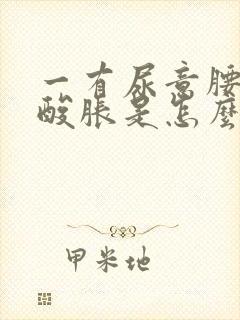 一有尿意腰
酸脹是怎麼
甲米地